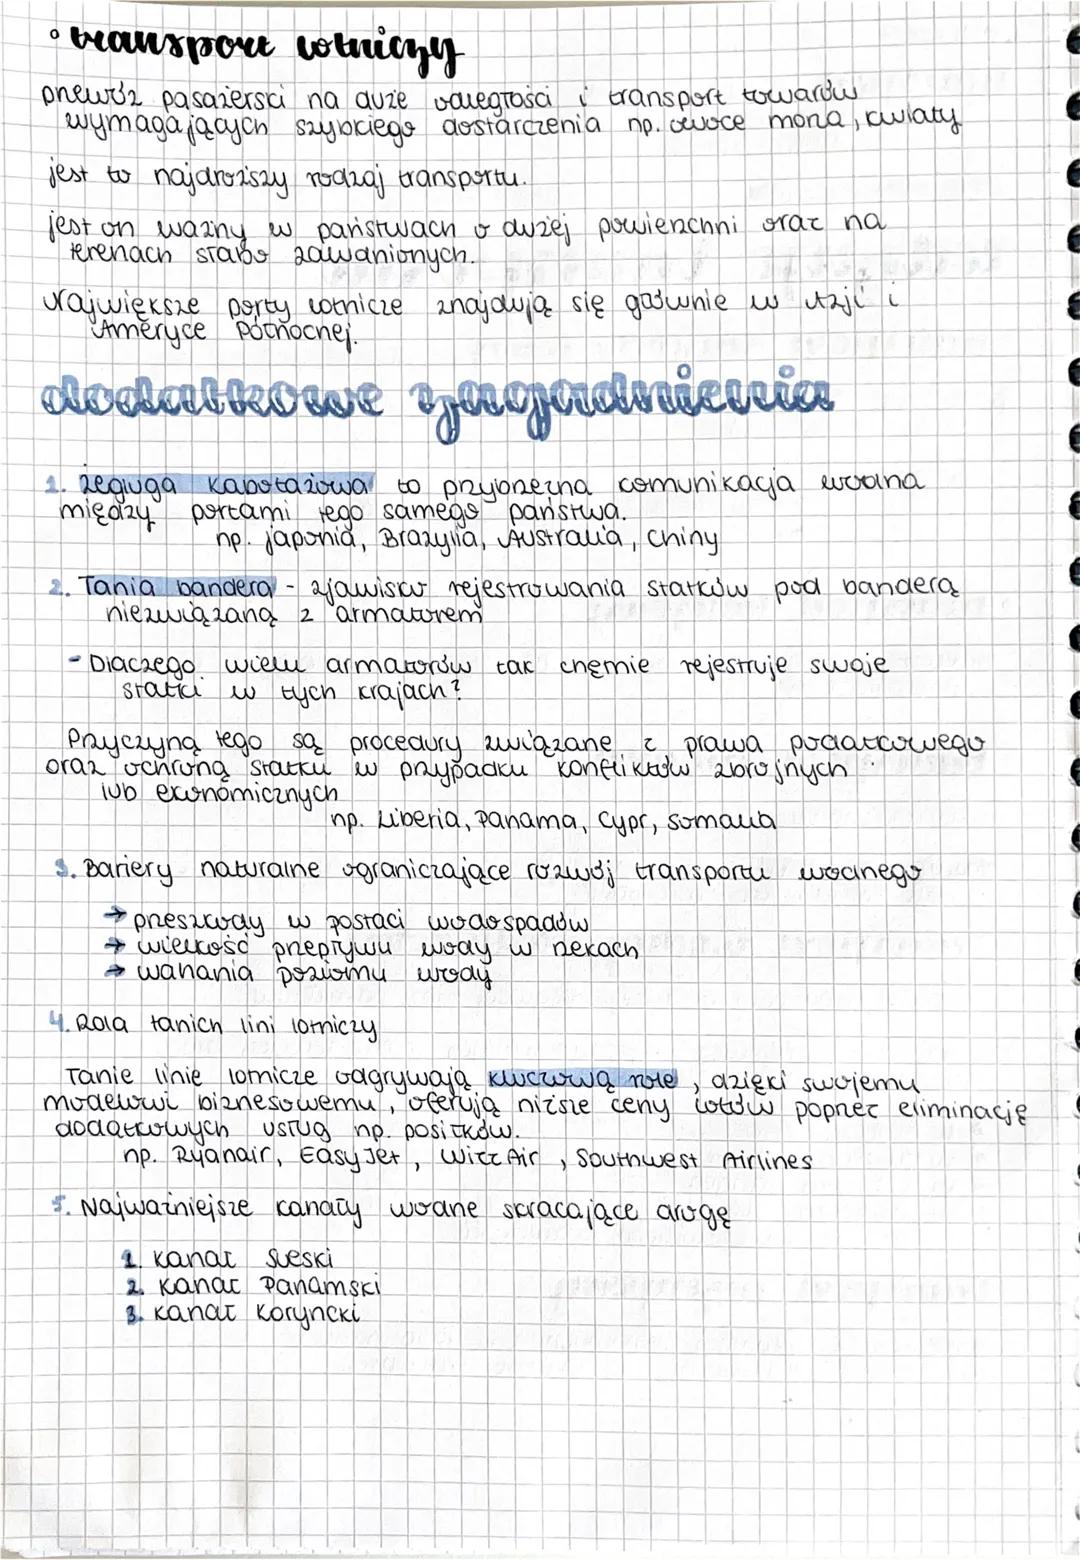 • transport lotniczy
przewóz pasażerski na duże odległości i transport towarów
wymagających szybkiego dostarczenia np. owoce morza, kwiaty
jest to najdroższy rodzaj transportu.
jest on ważny w państwach o dużej powierzchni oraz na
terenach słabo zawanionych.
Największe porty lotnicze znajdują się głównie w Azji i
Ameryce Północnej.
dodatkowe zagadnienia
1. żegluga kabotażowa to przybrzeżna komunikacja wodna
między portami tego samego państwa.
np. japonia, Brazylia, Australia, Chiny
2. Tania bandera - zjawisko rejestrowania statków pod banderą
niezwiązaną z armatorem
- Dlaczego wielu armatorów tak chętnie rejestruje swoje
statki w tych krajach?
Przyczyną tego są procedury związane z prawa podatkowego
oraz ochroną statku w przypadku konfliktów zbrojnych
lub ekonomicznych
np. Liberia, Panama, Cypr, Somalia
3. Bariery naturalne ograniczające rozwój transportu wodnego
→ przeszkody w postaci wodospadów
→ wielkość przepływu wody w rzekach
→ wahania poziomu wody
4. Rola tanich lini lotniczy
Tanie linie lotnicze odgrywają kluczową rolę, dzięki swojemu
modelowi biznesowemu, oferują niższe ceny lotów poprzez eliminację
dodatkowych usług np. posiłków.
np. Ryanair, EasyJet, Wizz Air, Southwest Airlines
5. Najważniejsze kanały wodne skracające drogę
1. kanał Sueski
2. kanał Panamski
3. kanał Koryncki